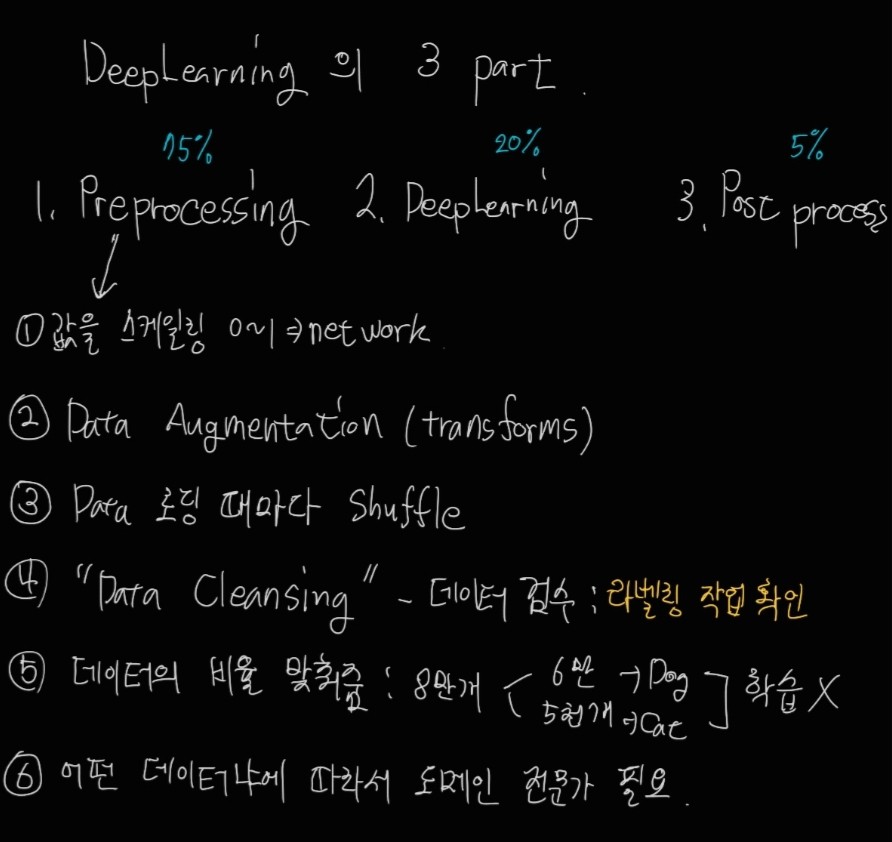 DeepLearning 의 3 part.
75% 20% 5%
1. Preprocessing 2. DeepLearning 3. Post process
① 값을 스케일링 0~1 ⇒ network.
② Data Augmentation (transforms)
③ Data 로딩 때마다 Shuffle
④ "Data Cleansing" - 데이터 검수 : 라벨링 작업 확인
⑤ 데이터의 비율 맞춰줌 : 8만개 < 6만 → Dog ] 학습 X
5천개 → Cat
⑥ 어떤 데이터냐에 따라서 도메인 전문가 필요.